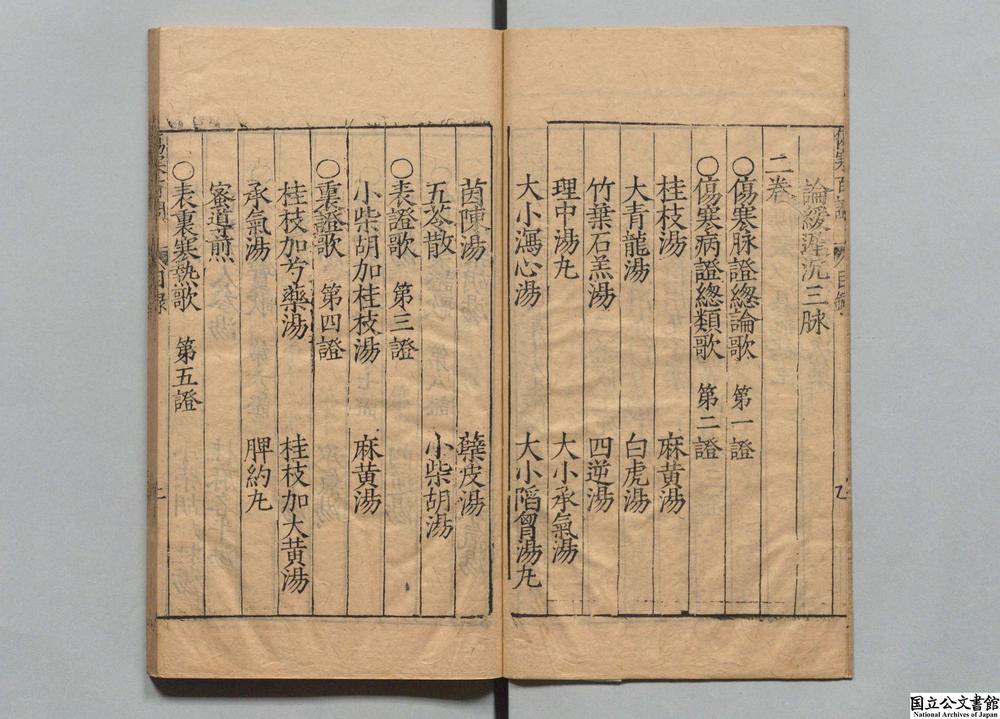 論緩遲沉三脉
二卷
○傷寒脉證總論歌 第一證
○傷寒病證總類歌 第二證
桂枝湯 麻黃湯
大青龍湯 白虎湯
竹葉石羔湯 四逆湯
理中湯丸 大小承氣湯
大小瀉心湯 大小陷胷湯丸
茵陳湯 蘗皮湯
五苓散 小柴胡湯
○表證歌 第三證
小柴胡加桂枝湯 麻黃湯
○裏證歌 第四證
桂枝加芍藥湯 桂枝加大黃湯
承氣湯 脾約丸
蜜導煎
○表裏寒熱歌 第五證
目錄
国立公文書館
National Archives of Japan